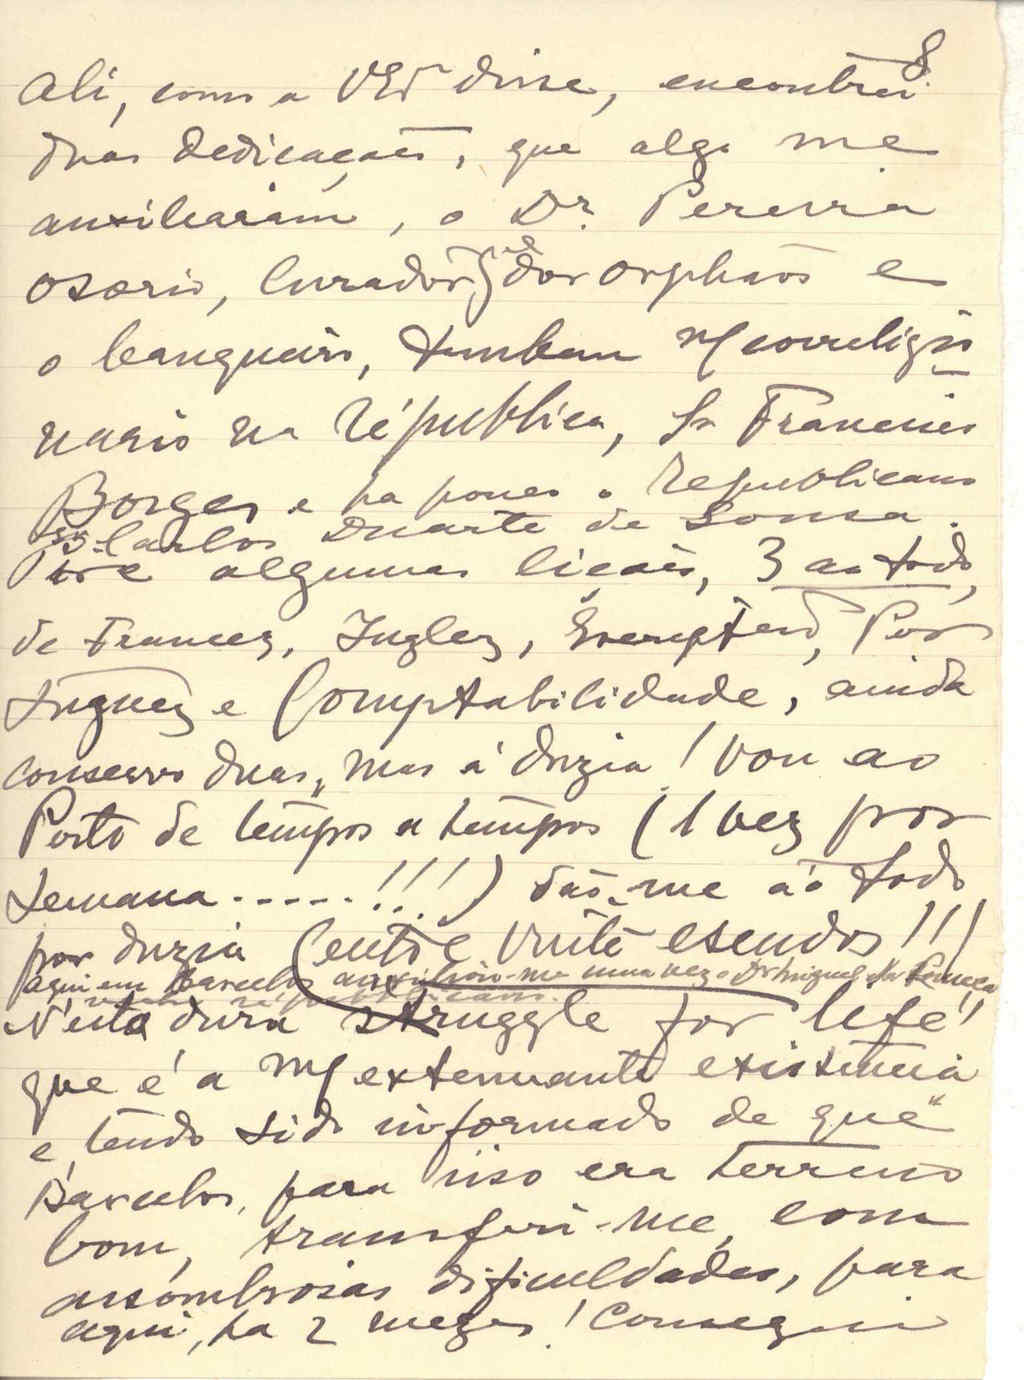 8
Ali, como a VEx disse, encontrei
duas dedicações, que algo me
auxiliaram, o Dr. Pereira
Osorio, Curador g.al dos orphãos e
o banqueiro, tambem m/ correligio
nario na républica, Sr Francisco
Borges e ha pouco o Republicano
Sr. Carlos Duarte de Sousa.
Tive algumas licões, 3 ao todo,
de Francez, Inglez, Por
tuguez e Comptabilidade, ainda
conservo duas, mas á duzia! Vou ao
Porto de tempos a tempos (1 vez por
semana.....!!!) dão-me ao todo
por duzia (entre vinte escudos!!!
aqui em Barcelos auxiliou-me uma vez o Dr Miguel da Fonseca
N'esta dura struggle for life!
que é a m/ extenuante existencia
e, tendo sido informado de que"
Barcelos, para isso era terreno
bom, transferi-me, com
assombrosas dificuldades, para
aqui, ha 2 mezes! Consegui